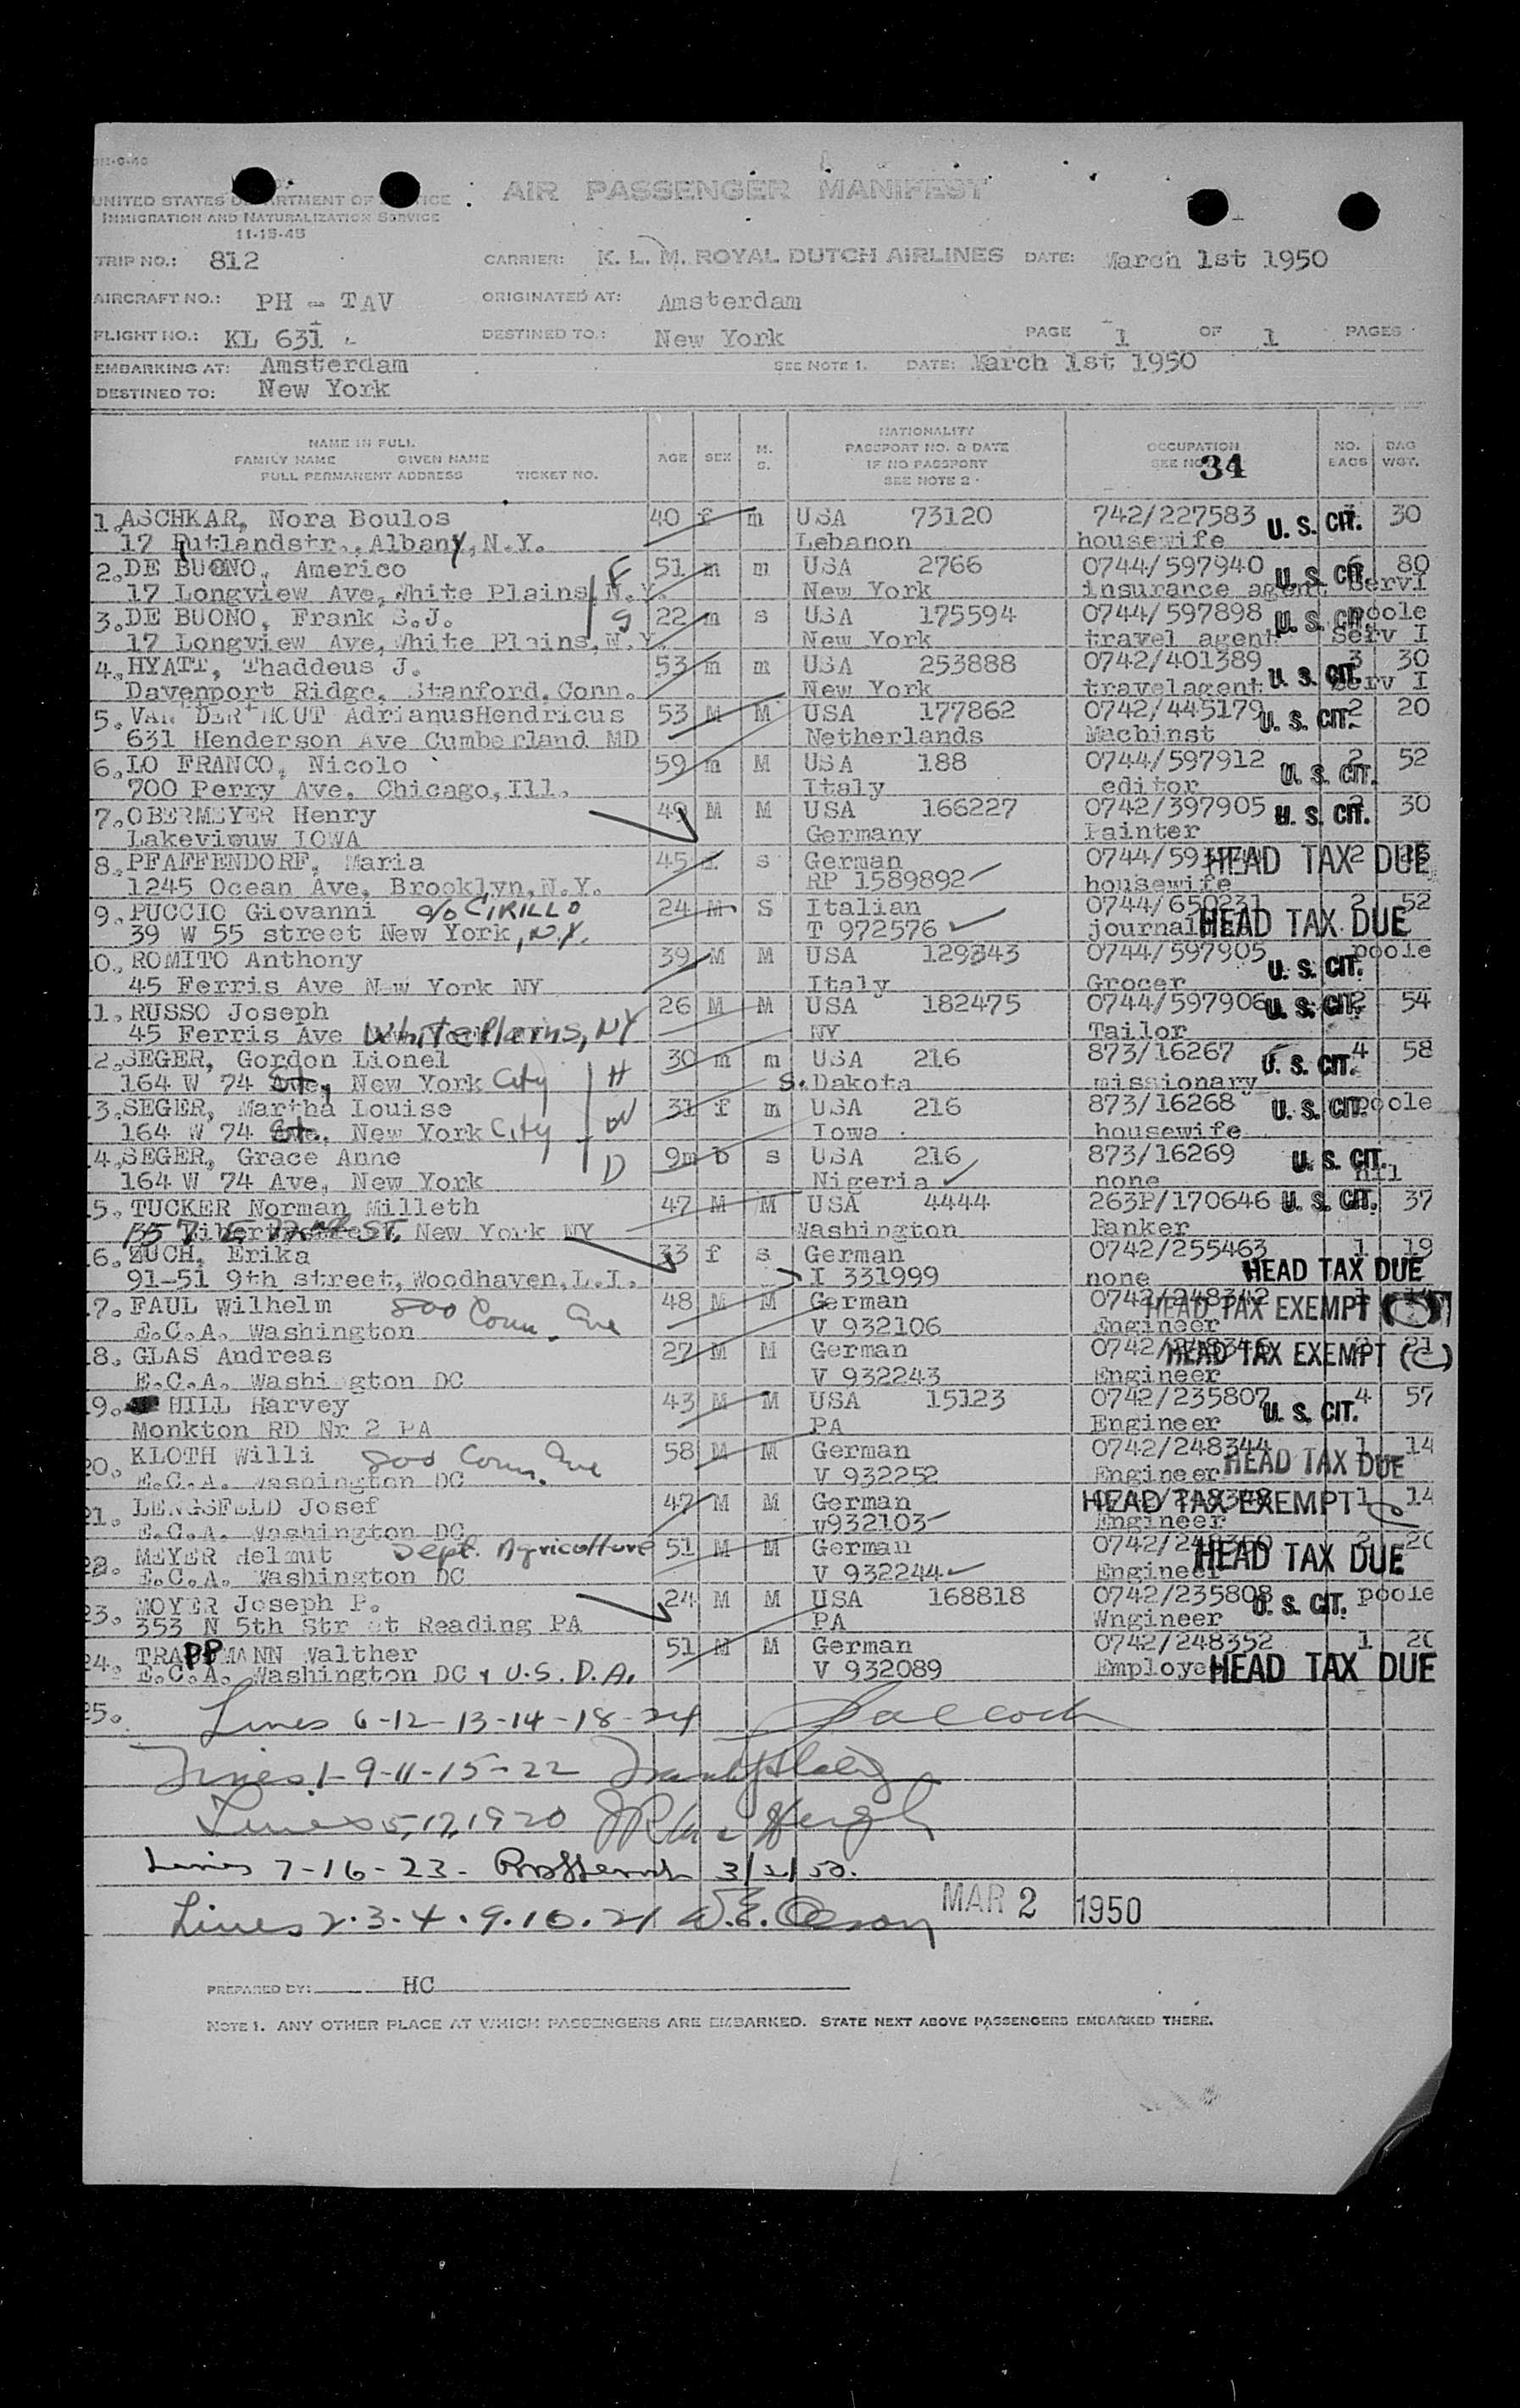 UNITED STATES DEPARTMENT OF JUSTICE
IMMIGRATION AND NATURALIZATION SERVICE
11-15-48
AIR PASSENGER MANIFEST
TRIP NO.: 812 CARRIER: K. L. M. ROYAL DUTCH AIRLINES DATE: March 1st 1950
AIRCRAFT NO.: PH - TAV ORIGINATED AT: Amsterdam
FLIGHT NO.: KL 631 DESTINED TO.: New York PAGE 1 OF 1 PAGES
EMBARKING AT: Amsterdam SEE NOTE 1. DATE: March 1st 1950
DESTINED TO: New York
NAME IN FULL
FAMILY NAME GIVEN NAME
FULL PERMANENT ADDRESS TICKET NO.
AGE SEX M. S.
NATIONALITY
PASSPORT NO. & DATE
IF NO PASSPORT
SEE NOTE 2
OCCUPATION
SEE NO 34
NO. BAGS BAG WGT.
1. ASCHKAR, Nora Boulos 40 f m USA 73120 742/227583 U. S. CIT. 30
17 Rutlandstr., Albany, N.Y. Lebanon housewife
2. DE BUONO, Americo F 51 m m USA 2766 0744/597940 U. S. CIT. 6 80
17 Longview Ave, White Plains, N.Y. New York insurance agent Servi
3. DE BUONO, Frank S.J. S 22 m s USA 175594 0744/597898 U. S. CIT. poole
17 Longview Ave, White Plains, N.Y. New York travel agent Serv I
4. HYATT, Thaddeus J. 53 m m USA 253888 0742/401389 U. S. CIT. 3 30
Davenport Ridge, Stanford, Conn. New York travelagent Serv I
5. VAN DER HOUT AdrianusHendricus 53 M M USA 177862 0742/445179 U. S. CIT. 2 20
631 Henderson Ave Cumberland MD Netherlands Machinst
6. LO FRANCO, Nicolo 59 m M USA 188 0744/597912 U. S. CIT. 2 52
700 Perry Ave. Chicago, Ill. Italy editor
7. OBERMEYER Henry 49 M M USA 166227 0742/397905 U. S. CIT. 2 30
Lakeviouw IOWA Germany Painter
8. PFAFFENDORF, Maria 45 s German HEAD TAX DUE 2
1245 Ocean Ave, Brooklyn, N.Y. RP 1589892 housewife
9. PUCCIO Giovanni c/o CIRILLO 24 M S Italian 0744/650231 2 52
39 W 55 street New York, N.Y. T 972576 HEAD TAX DUE
0. ROMITO Anthony 39 M M USA 129343 0744/597905 U. S. CIT. poole
45 Ferris Ave New York NY Italy Grocer
1. RUSSO Joseph 26 M M USA 182475 0744/597906 U. S. CIT. 2 54
45 Ferris Ave White Plains, NY NY Tailor
2. SEGER, Gordon Lionel H 30 m m USA 216 873/16267 U. S. CIT. 4 58
164 W 74 St., New York City S. Dakota missionary
3. SEGER, Martha Louise W 31 f m USA 216 873/16268 U. S. CIT. poole
164 W 74 St., New York City Iowa housewife
4. SEGER, Grace Anne D 9m b s USA 216 873/16269 U. S. CIT. nil
164 W 74 Ave, New York Nigeria none
5. TUCKER Norman Milleth 47 M M USA 4444 263P/170646 U. S. CIT. 37
New York NY Washington Banker
6. ZUCH, Erika 33 f s German 0742/255463 1 19
91-51 9th street, Woodhaven, L.I. I 331999 none HEAD TAX DUE
7. FAUL Wilhelm 800 Conn. Ave 48 M M German 0742/248342 HEAD TAX EXEMPT
E.C.A. Washington V 932106 Engineer
8. GLAS Andreas 27 M M German 0742/248346 HEAD TAX EXEMPT (C) 2 21
E.C.A. Washington DC V 932243 Engineer
9. HILL Harvey 43 M M USA 15123 0742/235807 U. S. CIT. 4 57
Monkton RD Nr 2 PA PA Engineer
20. KLOTH Willi 800 Conn. Ave 58 M M German 0742/248344 1 14
E.C.A. Washington DC V 932252 Engineer HEAD TAX DUE
21. LENGSFELD Josef 47 M M German HEAD TAX EXEMPT 1 14
E.C.A. Washington DC V932103 Engineer
22. MEYER Helmut Dept. Agriculture 51 M M German 0742/248350 2 20
E.C.A. Washington DC V 932244 Engineer HEAD TAX DUE
23. MOYER Joseph P. 24 M M USA 168818 0742/235808 U. S. CIT. poole
353 N 5th Street Reading PA PA Wngineer
24. TRAPPMANN Walther 51 M M German 0742/248352 1 20
E.C.A. Washington DC & U.S.D.A. V 932089 Employe HEAD TAX DUE
25. Lines 6-12-13-14-18-24
Lines 1-9-11-15-22
Lines 5, 17, 19 20
Lines 7-16-23- 3/2/50.
Lines 2.3.4.9.10.21 MAR 2 1950
PREPARED BY: HC
NOTE 1. ANY OTHER PLACE AT WHICH PASSENGERS ARE EMBARKED. STATE NEXT ABOVE PASSENGERS EMBARKED THERE.